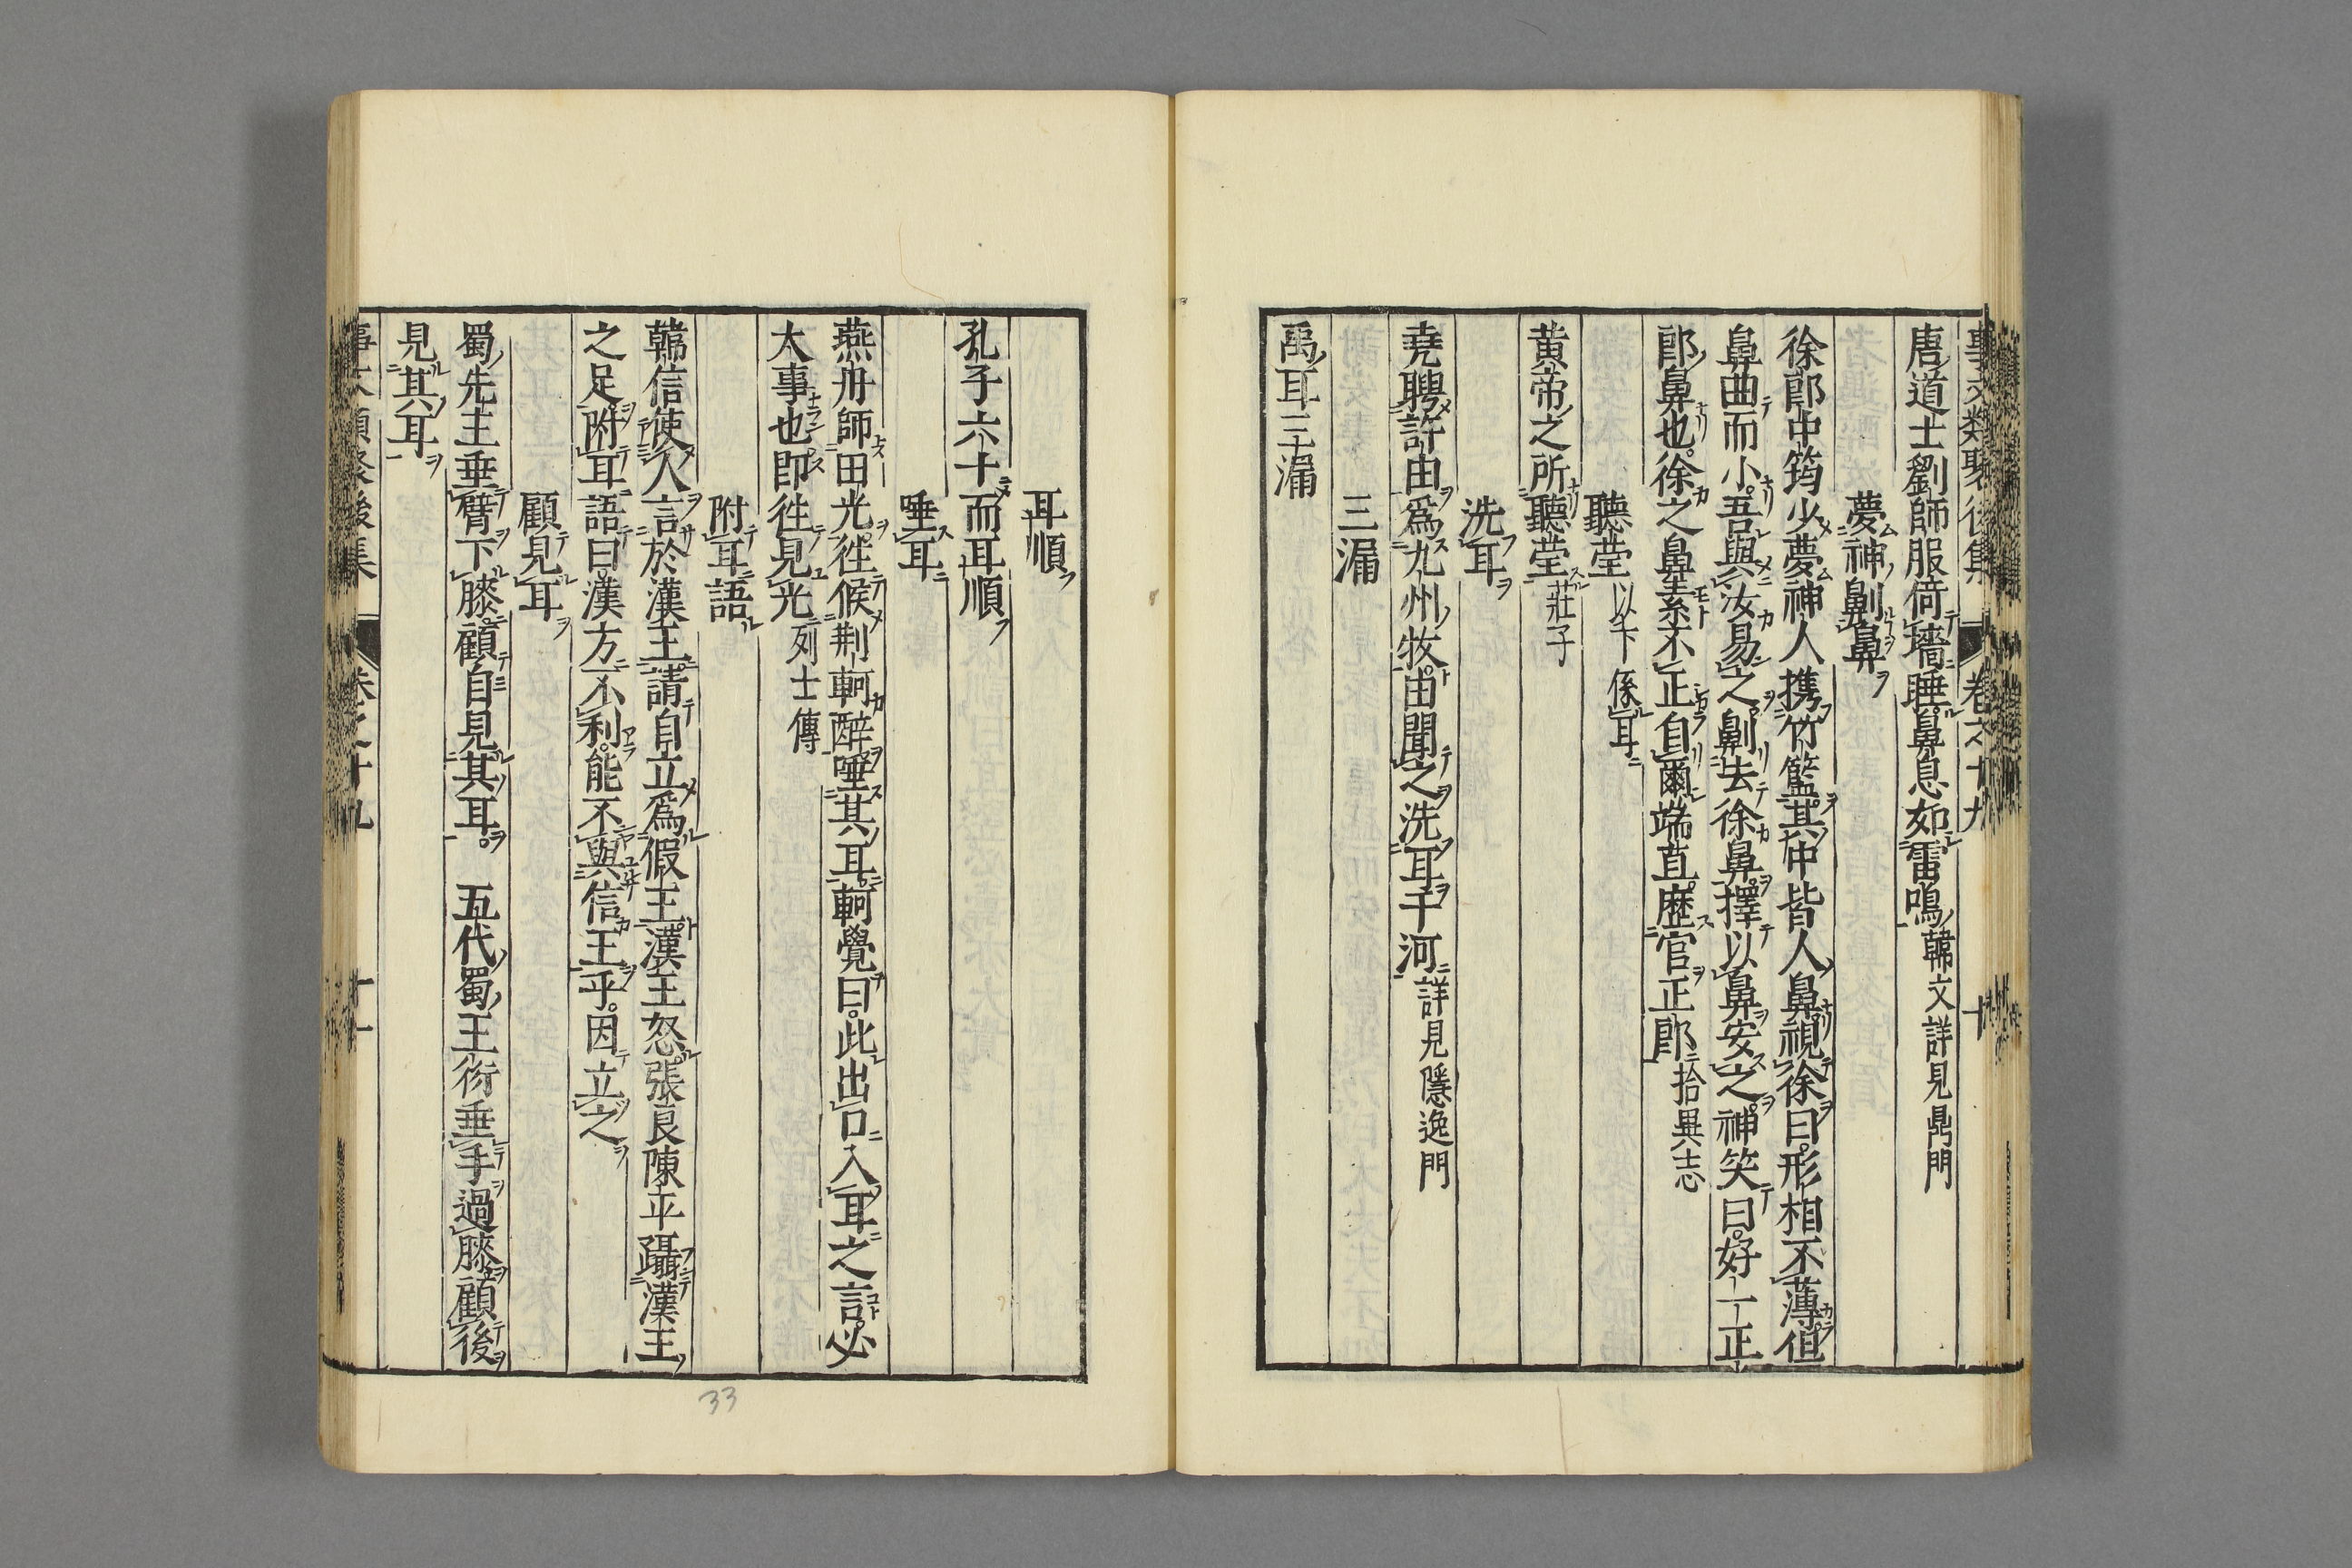 事文類聚後集 卷之十九 十
唐道士劉師服倚墻睡鼻息如雷鳴韓文詳見鼎門
夢神劓鼻
徐郎中筠少夢神人攜竹籃其中皆人鼻視徐曰形相不薄但
鼻曲而小吾與汝易之劓去徐鼻擇以鼻安之神笑曰好一正
郎鼻也徐之鼻素不正自爾端直歷官正郎拾異志
聽瑩以下係耳
黃帝之所聽瑩莊子
洗耳
堯聘許由爲九州牧由聞之洗耳于河詳見隱逸門
三漏
禹耳三漏
耳順
孔子六十而耳順
唾耳
燕丹師田光往候荆軻醉唾其耳軻覺曰此出口入耳之言必
大事也即往見光列士傳
附耳語
韓信使人言於漢王請自立爲假王漢王怒張良陳平躡漢王
之足附耳語曰漢方不利能不與信王乎因立之
顧見耳
蜀先主垂臂下膝顧自見其耳 五代蜀王衍垂手過膝顧後
見其耳
事文類聚後集 卷之十九 十一
33